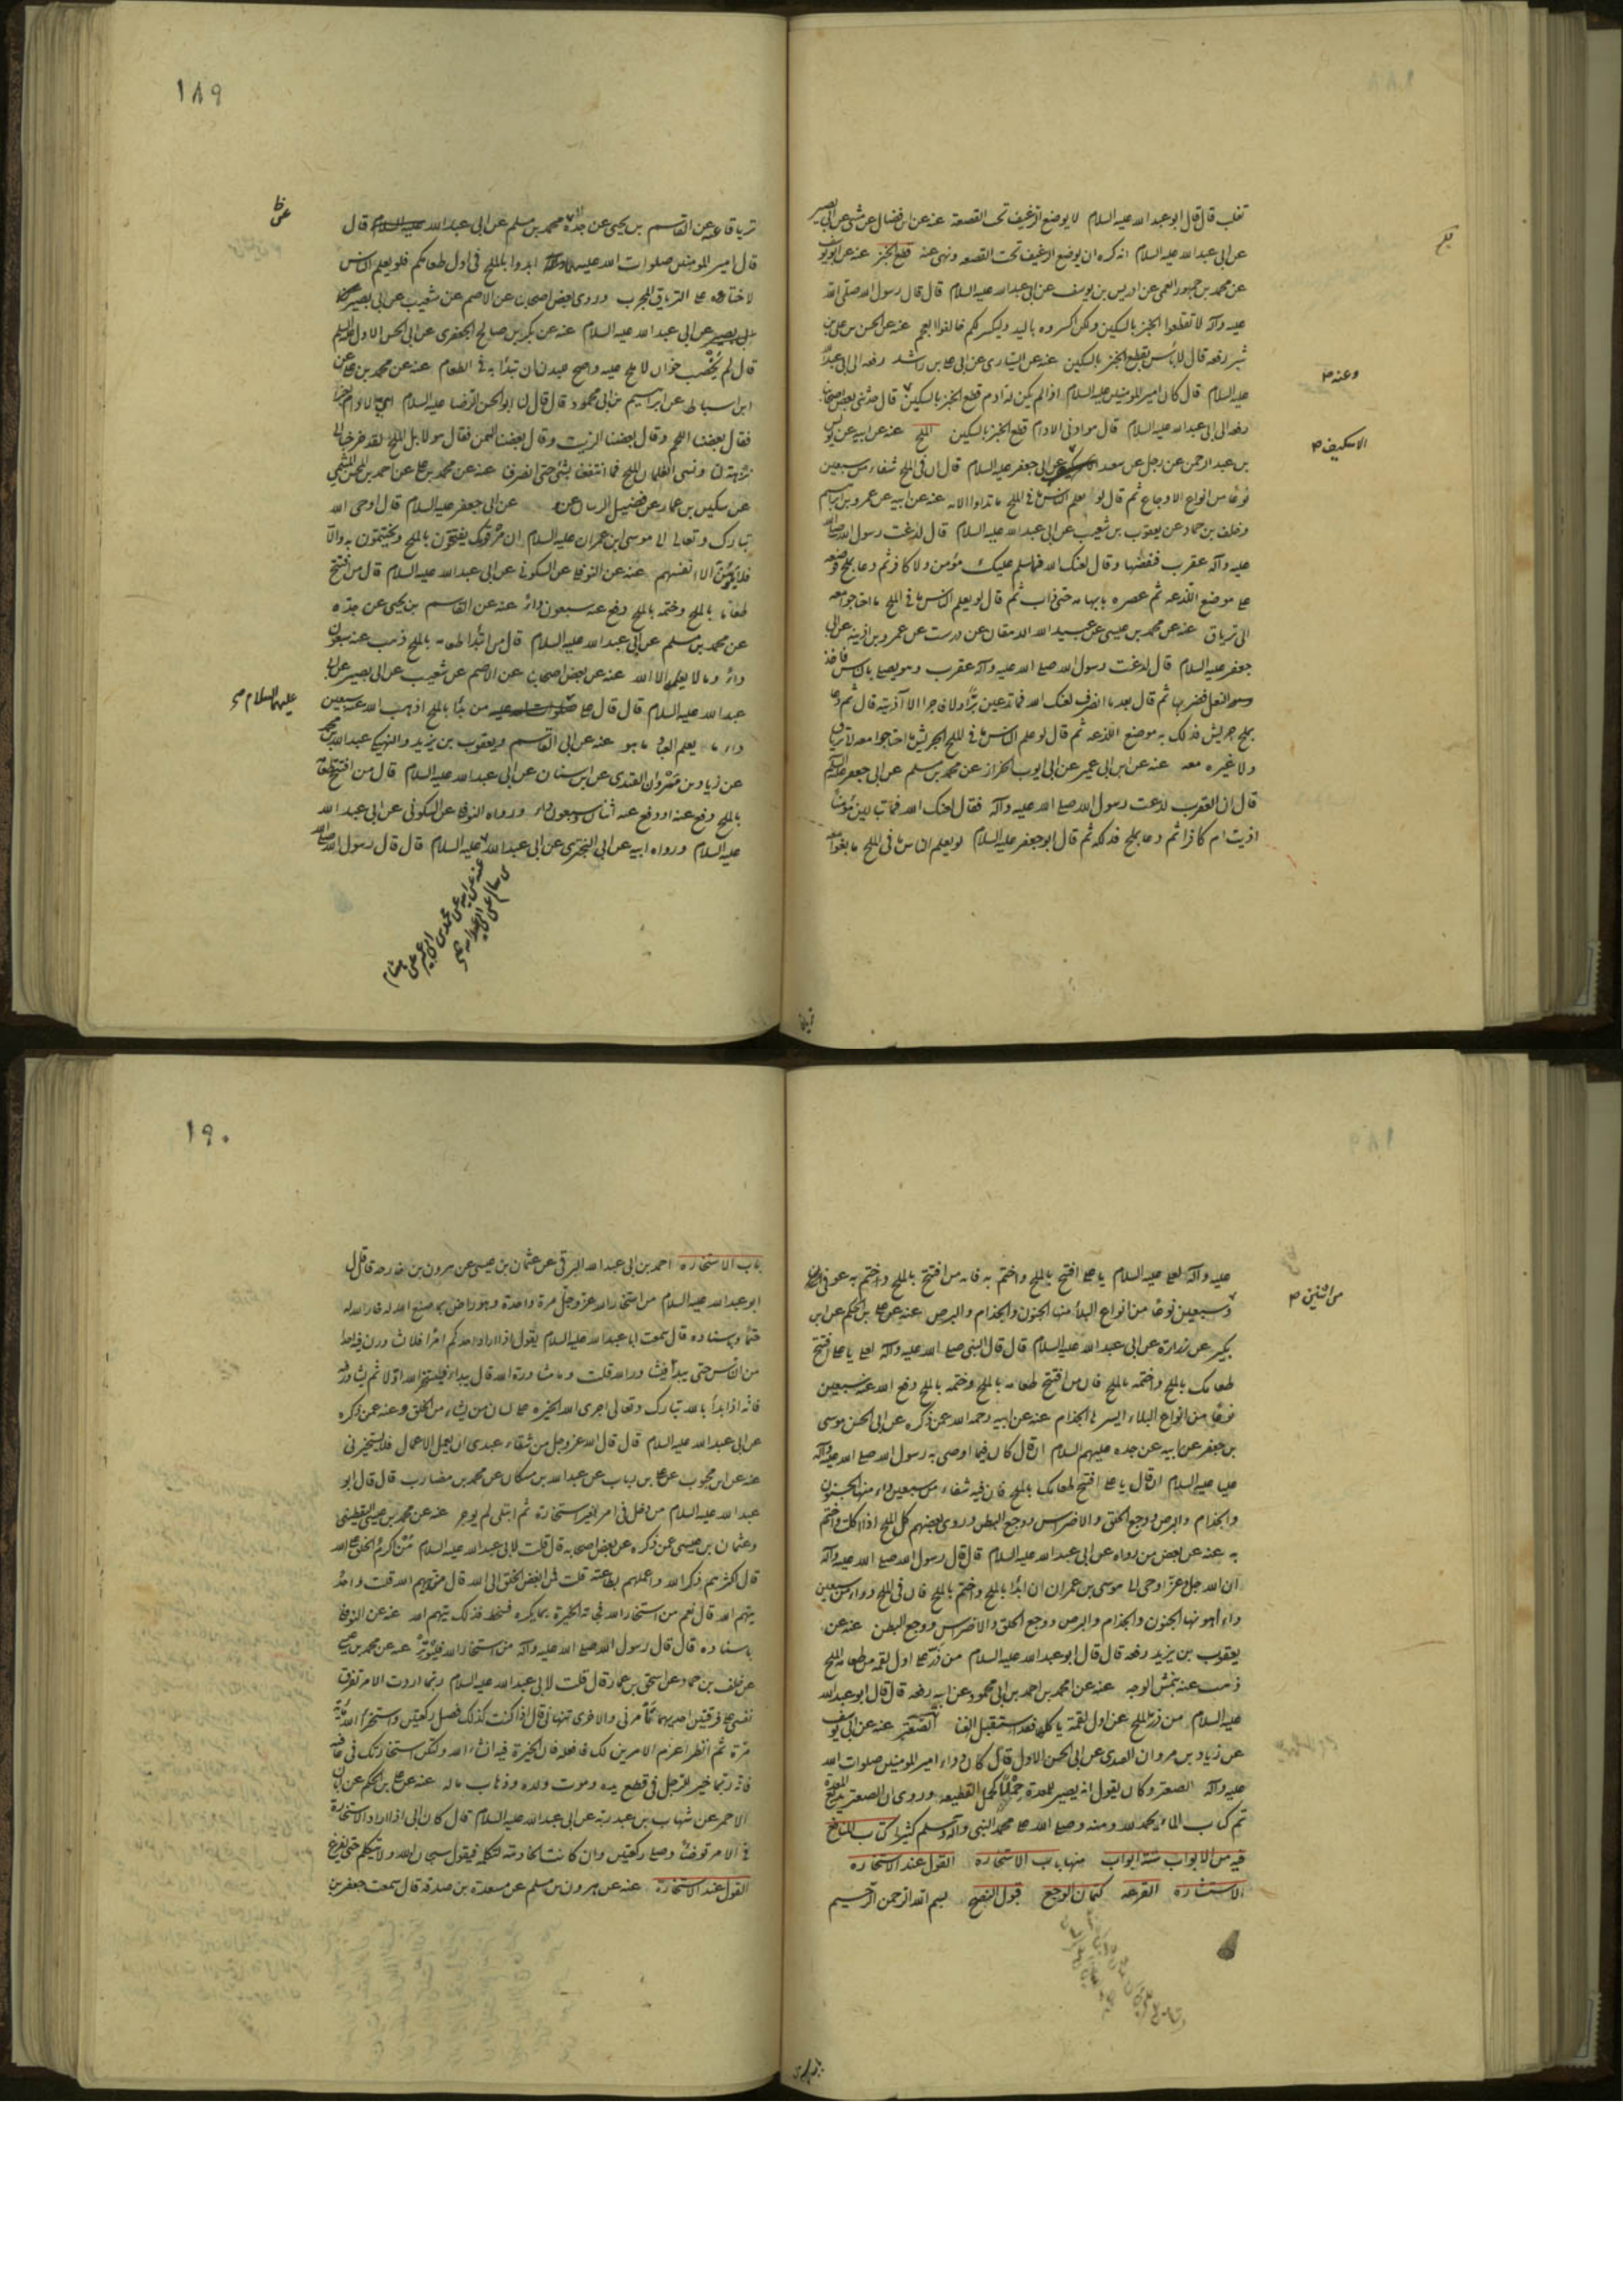 تغلب قال قال ابو عبد الله عليه السلام لا يوضع الرغيف تحت القصعة عنه عن ابن فضال عن مثنى عن ابى بصير
عن ابى عبد الله عليه السلام انه كره ان يوضع الرغيف تحت القصعه ونهى عنه قطع الخبز عنه عن ابى يوسف
عن محمد بن جمهور العمى عن ادريس بن يوسف عن ابى عبد الله عليه السلام قال قال رسول الله صلى الله
عليه وآله لا تقطعوا الخبز بالسكين ولكن اكسروه باليد وليكسر لكم خالفوا العجم عنه عن الحسن بن على بن
رفعه قال لا بأس بقطع الخبز بالسكين عنه عن السيارى عن ابى على بن راشد رفعه الى ابى عبد الله
وعنه
عليه السلام قال كان امير المؤمنين عليه السلام اذا لم يكن له ادم قطع الخبز بالسكين قال حدثنى بعض اصحابنا
رفعه الى ابى عبد الله عليه السلام قال ادنى الادام قطع الخبز بالسكين الملح عنه عن ابيه عن يونس
الاسكيف
بن عبد الرحمن عن رجل عن سعد عن ابى جعفر عليه السلام قال ان فى الملح شفاء من سبعين
نوعا من انواع الاوجاع ثم قال لو يعلم الناس ما فى الملح ما تداووا الا به عنه عن ابيه عن عمرو بن ابراهيم
وخلف بن حماد عن يعقوب بن شعيب عن ابى عبد الله عليه السلام قال لدغت رسول الله صلى الله
عليه وآله عقرب فنفضها وقال لعنك الله فما يسلم عليك مؤمن ولا كافر ثم دعا بملح فوضعه
على موضع اللدغه ثم عصره بابهامه حتى ذاب ثم قال لو يعلم الناس ما فى الملح ما احتاجوا معه
الى ترياق عنه عن محمد بن عيسى عن عبيد الله الدهقان عن درست عن عمرو بن اذينه عن ابى
جعفر عليه السلام قال لدغت رسول الله صلى الله عليه وآله عقرب وهو يصلى بالناس فاخذ
النعل فضربها ثم قال بعد ما انصرف لعنك الله فما تدعين برا ولا فاجرا الا آذيته قال ثم دعا
بملح جريش فدلك به موضع اللدغه ثم قال لو علم الناس ما فى الملح الجريش ما احتاجوا معه الى ترياق
ولا غيره معه عنه عن ابن ابى عمير عن ابى ايوب الخزاز عن محمد بن مسلم عن ابى جعفر عليه السلام
قال ان العقرب لدغت رسول الله صلى الله عليه وآله فقال لعنك الله فما تبالين مؤمنا
اذيت ام كافرا ثم دعا بملح فدلكه ثم قال ابو جعفر عليه السلام لو يعلم الناس ما فى الملح ما بغوا معه
١٨٩
ترياقا عنه عن القاسم بن يحيى عن جده محمد بن مسلم عن ابى عبد الله عليه السلام قال
قال امير المؤمنين صلوات الله عليه ابدوا بالملح فى اول طعامكم فلو يعلم الناس
لاختاروه على الترياق المجرب وروى بعض اصحابنا عن الاصم عن شعيب عن ابى بصير
عن ابى عبد الله عليه السلام عنه عن بكر بن صالح الجعفرى عن ابى الحسن الاول عليه السلام
قال لم يخصب خوان لا ملح عليه واصح للبدن ان تبدأ به فى الطعام عنه عن محمد بن على عن
ابن اسباط عن ابراهيم بن ابى محمود قال قال لنا ابو الحسن الرضا عليه السلام اى الادام
فقال بعضنا اللحم وقال بعضنا الزيت وقال بعضنا السمن فقال هو لا بل الملح لقد خرجنا الى
نزهة لنا ونسى الغلمان الملح فما انتفعنا بشئ حتى انصرفنا عنه عن محمد بن على عن احمد بن المحسن الميثمى
عن سكين بن عمار عن فضيل الرسان عن ابى جعفر عليه السلام قال اوحى الله
تبارك وتعالى الى موسى ابن عمران عليه السلام ان مر قومك يفتتحون بالملح ويختتمون به والا
فلا يلومن الا انفسهم عنه عن النوفلى عن السكونى عن ابى عبد الله عليه السلام قال من افتتح
طعاما بالملح وختمه بالملح دفع عنه سبعون داء عنه عن القاسم بن يحيى عن جده
عن محمد بن مسلم عن ابى عبد الله عليه السلام قال من ابتدأ طعامه بالملح ذهب عنه سبعون
داء وما لا يعلمه الا الله عنه عن بعض اصحابنا عن الاصم عن شعيب عن ابى بصير عن ابى
عليهما السلام
عبد الله عليه السلام قال قال على صلوات الله عليه من بدأ بالملح اذهب الله عنه سبعين
داء ما يعلم العباد ما هو عنه عن ابى القاسم ويعقوب بن يزيد والنهيكى عبد الله بن محمد
عن زياد بن مروان القندى عن ابن سنان عن ابى عبد الله عليه السلام قال من افتتح طعامه
بالملح دفع عنه او رفع عنه اثنان وسبعون داء ورواه النوفلى عن السكونى عن ابى عبد الله
عليه السلام ورواه ابيه عن ابى البخترى عن ابى عبد الله عليه السلام قال قال رسول الله صلى الله
عليه وآله لعلى عليه السلام يا على افتتح بالملح واختم به فانه من افتتح بالملح واختم به عوفى من
من اثنين
وسبعين نوعا من انواع البلاء منها الجنون والجذام والبرص عنه عن على بن الحكم عن ابن
بكير عن زرارة عن ابى عبد الله عليه السلام قال قال النبى صلى الله عليه وآله لعلى يا على افتتح
طعامك بالملح واختمه بالملح فان من افتتح طعامه بالملح وختمه بالملح دفع الله عنه سبعين
نوعا من انواع البلاء ايسرها الجذام عنه عن ابيه رحمه الله عمن ذكره عن ابى الحسن موسى
بن جعفر عن ابيه عن جده عليهم السلام ان قال كان فيما اوصى به رسول الله صلى الله عليه وآله
عليا عليه السلام ان قال يا على افتتح طعامك بالملح فان فيه شفاء من سبعين داء منها الجنون
والجذام والبرص ووجع الحلق والاضراس ووجع البطن وروى بعضهم كل الملح اذا اكلت واختم
به عنه عن بعض من رواه عن ابى عبد الله عليه السلام قال قال رسول الله صلى الله عليه وآله
ان الله جل وعز اوحى الى موسى بن عمران ان ابدأ بالملح واختم بالملح فان فى الملح دواء من سبعين
داء اهونها الجنون والجذام والبرص ووجع الحلق والاضراس ووجع البطن عنه عن
يعقوب بن يزيد رفعه قال قال ابو عبد الله عليه السلام من ذر على اول لقمة من طعامه الملح
ذهب عنه بنمش الوجه عنه عن احمد بن ابى محمود عن ابيه رفعه قال قال ابو عبد الله
عليه السلام من ذر الملح على اول لقمة ياكلها فقد استقبل الغنا الصعتر عنه عن ابى يوسف
عن زياد بن مروان القندى عن ابى الحسن الاول قال كان دواء امير المؤمنين صلوات الله
عليه وآله الصعتر وكان يقول انه يصير للمعدة خملا كخمل القطيفه وروى ان الصعتر يدبغ المعدة
تم كتاب الماء بحمد الله ومنه وصلى الله على محمد النبى وآله وسلم كثيرا كتاب المنافع
فيه من الابواب ستة ابواب منها باب الاستخاره القول عند الاستخاره
الاستشارة القرعه كتمان الوجع قبول النصح بسم الله الرحمن الرحيم
١٩٠
باب الاستخاره احمد بن ابى عبد الله البرقى عن عثمان بن عيسى عن هرون بن خارجه قال قال
ابو عبد الله عليه السلام من استخار الله عز وجل مرة واحدة وهو راض بما صنع الله له خار الله له
حتما وباسناده قال سمعت ابا عبد الله عليه السلام يقول اذا اراد احدكم امرا فلا يشاورن فيه احدا
من الناس حتى يبدأ فيشاور الله قلت وما مشاورة الله قال يبدأ فيستخير الله اولا ثم يشاور فيه
فانه اذا بدأ بالله تبارك وتعالى اجرى الله الخيره على لسان من يشاء من الخلق وعنه عمن ذكره
عن ابى عبد الله عليه السلام قال قال الله عز وجل من شقاء عبدى ان يعمل الاعمال فلا يستخيرنى
عنه عن ابن محبوب عن على بن رباب عن عبد الله بن مسكان عن محمد بن مضارب قال قال ابو
عبد الله عليه السلام من دخل فى امر بغير استخارة ثم ابتلى لم يوجر عنه عن محمد بن عيسى اليقطينى
وعثمان بن عيسى عمن ذكره عن بعض اصحابه قال قلت لابى عبد الله عليه السلام من اكرم الخلق على الله
قال اكثرهم ذكرا لله واعملهم بطاعته قلت فمن ابغض الخلق الى الله قال من يتهم الله قلت واحد
يتهم الله قال نعم من استخار الله فجائته الخيرة بما يكره فسخط فذلك يتهم الله عنه عن النوفلى
باسناده قال قال رسول الله صلى الله عليه وآله من استخار الله فليوتر عنه عن محمد بن عيسى
عن خلف بن حماد عن اسحق بن عمار قال قلت لابى عبد الله عليه السلام ربما اردت الامر تفرق
نفسى على فرقتين احديهما تأمرنى والاخرى تنهانى قال اذا كنت كذلك فصل ركعتين واستخر الله مائة
مرة ثم انظر اعزم الامرين لك فافعله فان الخيرة فيه انشاء الله ولتكن استخارتك فى عافيه
فانه ربما خير للرجل فى قطع يده وموت ولده وذهاب ماله عنه عن على بن الحكم عن ابان
الاحمر عن شهاب بن عبد ربه عن ابى عبد الله عليه السلام قال كان ابى اذا اراد الاستخارة
فى الامر توضأ وصلى ركعتين وان كانت الخادمة لتكلمه فيقول سبحان الله ولا يتكلم حتى يفرغ
القول عند الاستخارة عنه عن هرون بن مسلم عن مسعدة بن صدقه قال سمعت جعفر بن